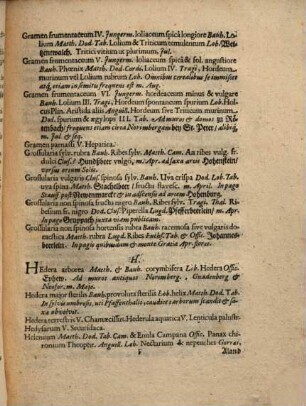 Gramen frumentaceum IV. Jungerm. loliaceum spicâ longiore Bauh. Lolium Matth. Dod. Tab. Lolium & Triticum temulentum Lob.
menwalch. Tritici vitium ut plurimum. Jul.
Gramen frumentaceum V. Jungerm. loliaceum, spicâ & fol. angustiore
Bauh. Phœnix Matth. Dod. Cord. Lolium IV. Tragi, Hordeum
murinum vel Lolium rubrum Lob. Omnibus cerealibus se immiscet
atq; etiam in semitis frequens est m. Aug.
Gramen frumentaceum VI. Jungerm. hordeaceum minus & vulgare
Bauh. Lolium III. Tragi, Hordeum spontaneum spurium Lob. Holcus Plin. Aristida aliis. Anguill. Hordeum sive Triticum murinum
Dod. spurium & ἄγριον III. Tab. Ad muros & domos zu
tenbach/ frequens etiam circa Norimbergam bey St. Peter/ alibíq;
m. Jul. & seq.
Gramen parnassi V. Hepatica.
Grossularia sylv. rubra Bauh. Ribes sylv. Matth. Cam. An ribes vulg.
fructu dulci Clus. Hundsbeer vulgo, m. Apr. ad saxa arcus Hohenstein/
versus ortum sitæ.
Grossularia vulgaris Clus. spinosa sylv. Bauh. Uva crispa Dod. Lob. Tab.
Uva spina Matth. Stachelbeer/ fructu flavesc. m. April. In pago
post Reumenmarckt & in adscensu ad arcem Hohenburg.
Grossularia non spinosa fructu nigro Bauh. Ribes sylv. Tragi. Thal.
Ribesium fr. nigro Dod. Clus. Piperella Lugd. Pfefferbeerlein/ m. Apr.
in pago Grünpach juxta viam publicam.
Grossularia non spinosa hortensis rubra Bauh. rubra sive vulgaris domestica Matth. rubra Lugd. Ribes Eucht. Tab. & Offic. Johannesbeerlein. In pagis quibusdam & monte Gratiæ Apr. flores.
H.
Hedera arborea Matth. & Bauh. corymbifera Lob. Hedera Offic.
Ephew. Ad muros antiquos Norimberg. Gnadenberg &
Neuhof. m. Majo.
Hedera major sterilis Bauh. provoluta sterilis Lob. helix Matth. Dod. Tab.
In sylvis umbrosis, uti Pfaffenthal: caudices arborum scandit & saxa obvolvit.
Hedera terrestris V. Chamæcissus. Hederula aquatica V. Lenticula palustr.
Hedysarum V. Securidaca.
Helenium Matth. Dod. Tab. Cam. & Enula Campana Offic. Panax chironium Theophr. Anguill. Lob. Nectarium & nepenthes Gorræi,
F
Aland